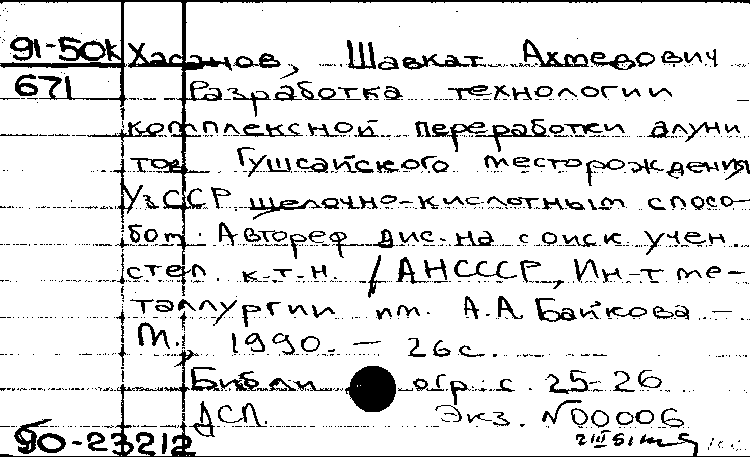 91-50к Хасанов, Шавкат Ахмедович
671 Разработка технологии
комплексной переработки алуни
тов Гушсайского месторождения
УзССР щелочно-кислотным спосо-
бом: Автореф дис. на соиск учен.
степ. к.т.н. / АНСССР, Ин-т ме-
таллургии им. А.А. Байкова -
М., 1990. - 26 с.
Библи огр: с. 25-26
ДСП. Экз. №00006
90-23212